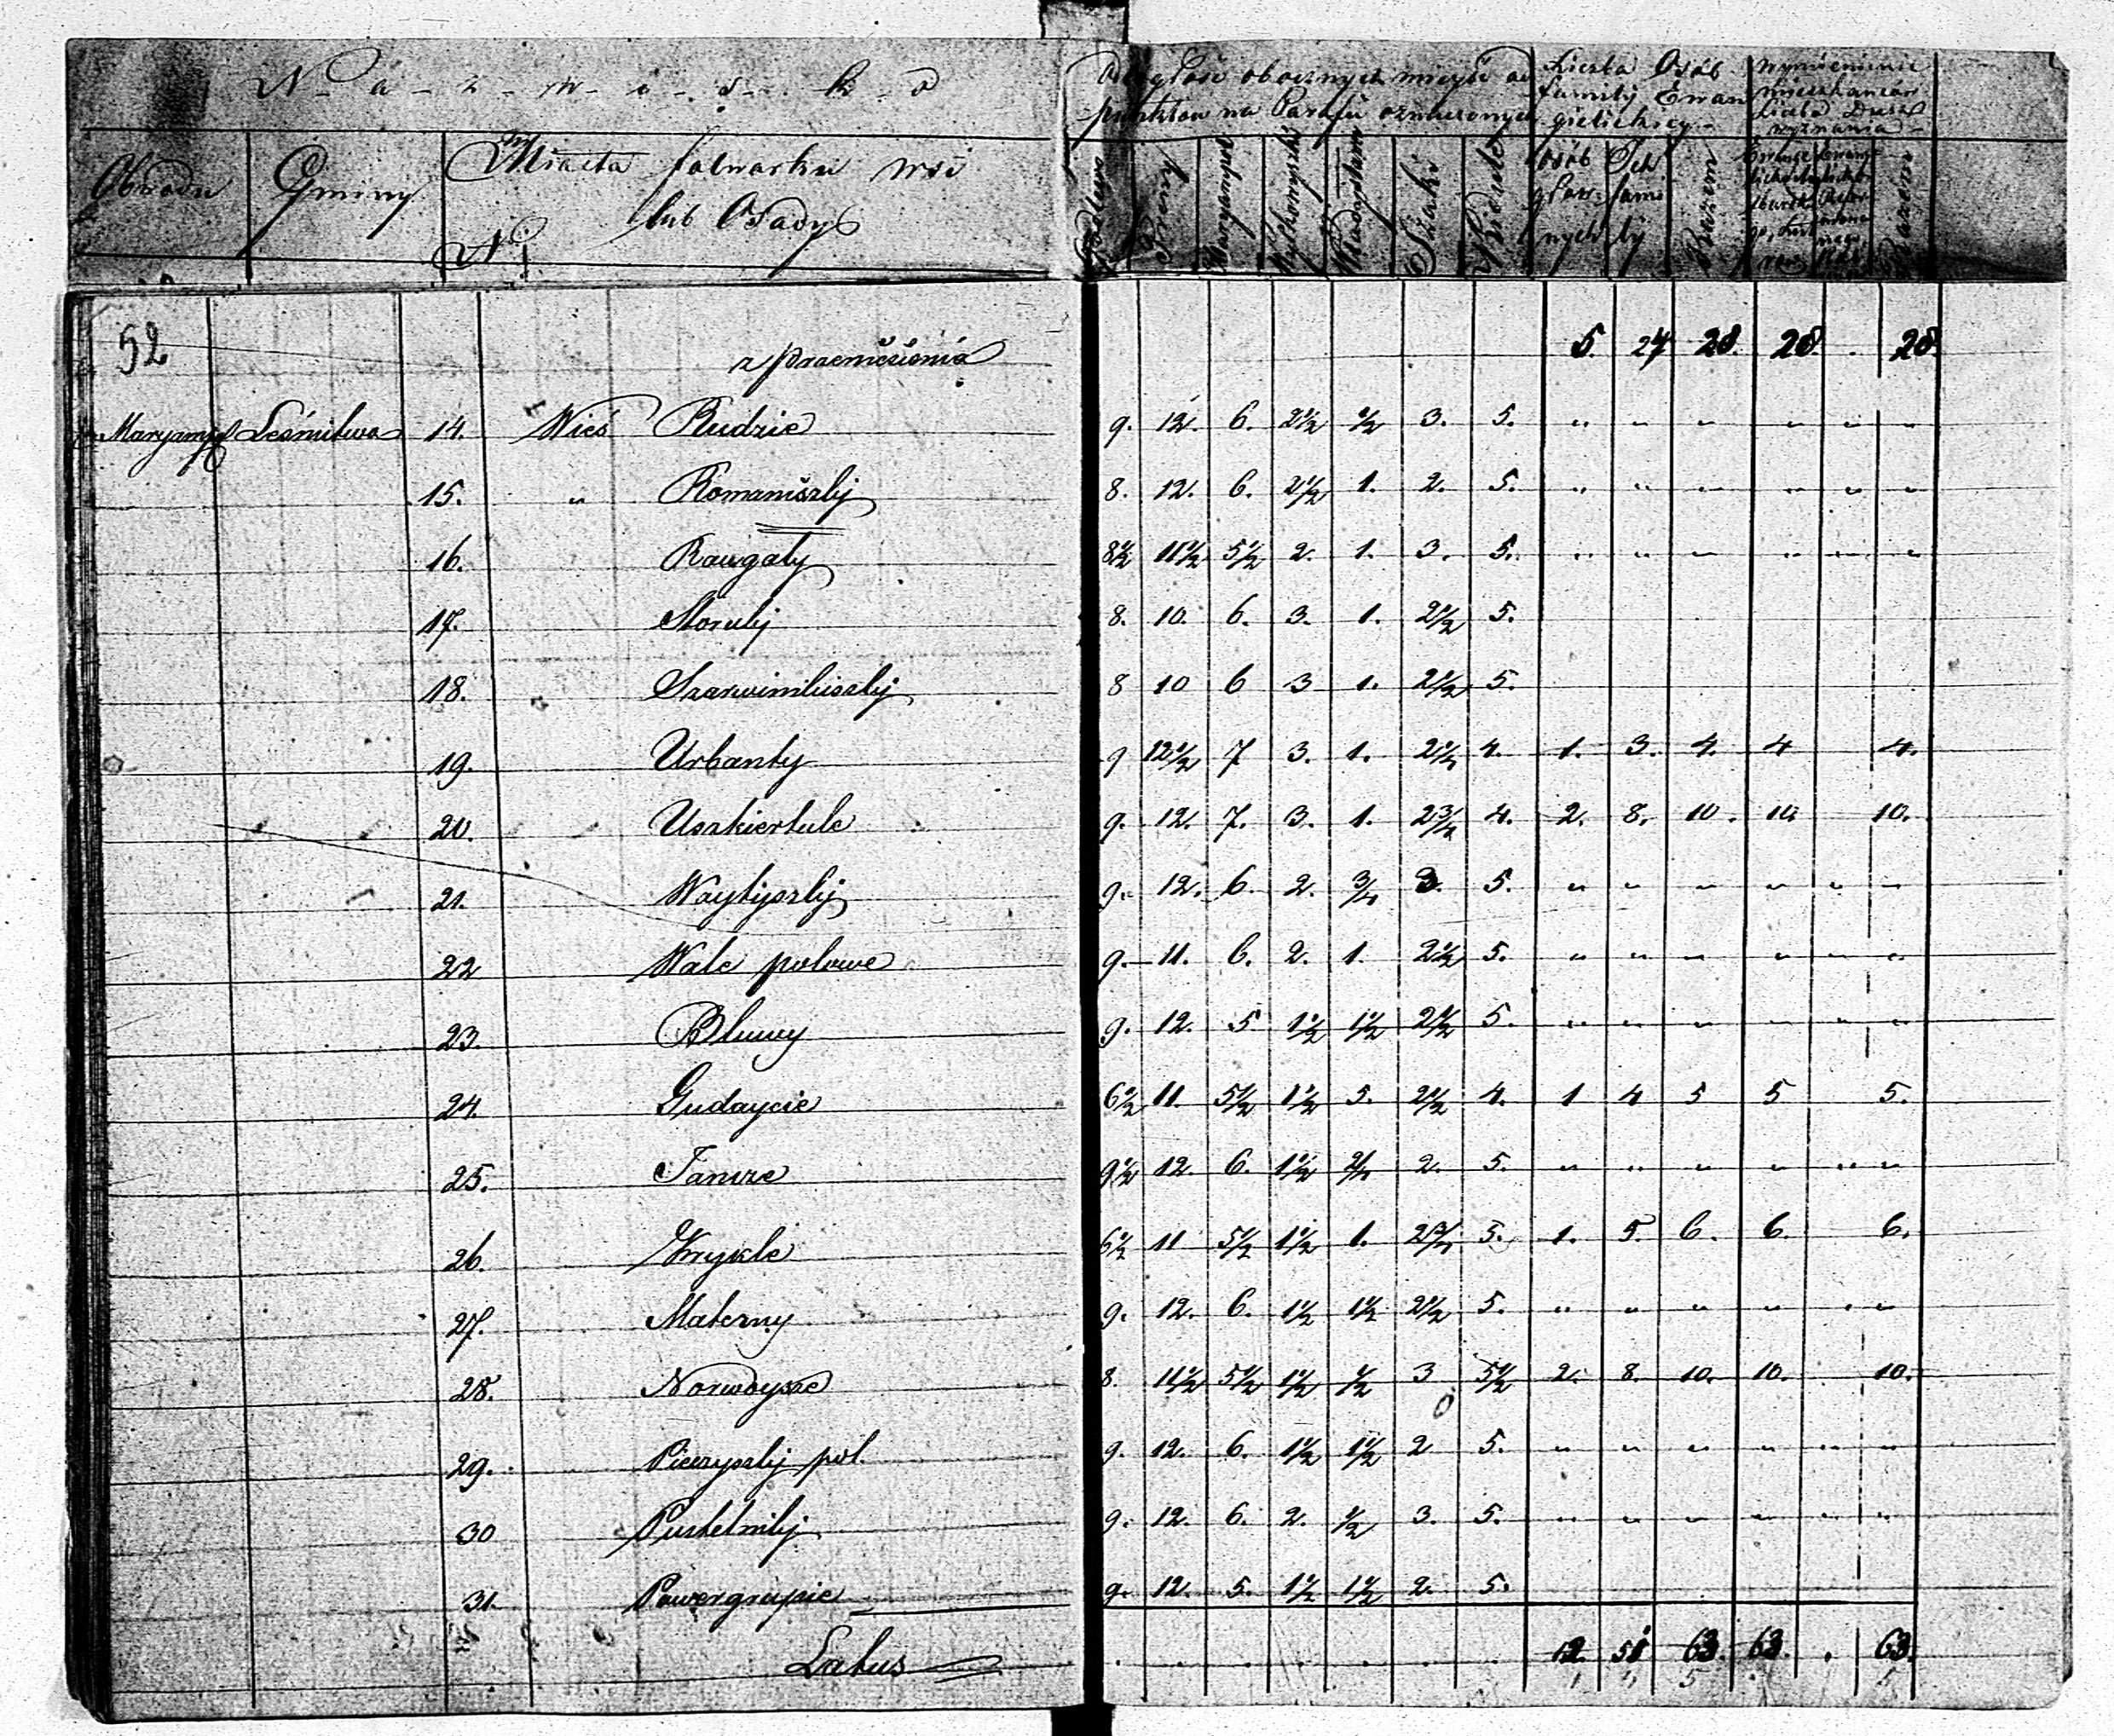 N - a - z - w - i - s - k - o
Odległość obocznych mieysc od punktow na Parafii oznaczonych
Liczba Osób familij Ewangielickiey
wymienienie mieszkancow Liczba Dusz wyznania
Obwodu Gminy Miasta folwarku wsi lub Osady
N
Maryampol Wyłkowyszki Szaki Kibarty osób głownych Ich famili Razem Razem
52
z przeniesienia 5. 24 28. 28. . 28.
Maryamp Leśnictwo 14. Wieś Rudzie 9. 12. 6. 2½ ½ 3. 5. " " " " " "
15. " Romaniszky 8. 12. 6. 2½ 1. 2. 5. " " " " " "
16. Raugaly 8½ 11½ 5½ 2. 1. 3. 5. " " " " " "
17. Storuky 8. 10. 6. 3. 1. 2½ 5.
18. Szarwinikiszky 8 10 6 3 1. 2½ 5.
19. Urbanty 9 12½ 7 3. 1. 2½ 4. 1. 3. 4. 4 4.
20. Uszkiertule 9. 12. 7. 3. 1. 2¾ 4. 2. 8. 10. 10 10.
21. Waytyszky 9. 12. 6. 2. ¾ 3. 5. " " " " " "
22 Wale polowe 9. 11. 6. 2. 1. 2½ 5. " " " " " "
23. Bluwy 9. 12. 5 1½ 1½ 2½ 5. " " " " " "
24. Gudaycie 6½ 11. 5½ 1½ 5. 2½ 4. 1 4 5 5 5.
25. Janize 9½ 12. 6. 1½ 2. 5. " " " " " "
26. Krykle 6½ 11 5½ 1½ 1. 2¾ 5. 1. 5. 6. 6. 6.
27. Materny 9. 12. 6. 1½ 1½ 2½ 5. " " " " " "
28. Norwoysze 8. 11½ 5½ 1½ ½ 3 5½ 2. 8. 10. 10. 10.
29. Pieczyszky pol. 9. 12. 6. 1½ 1½ 2 5. " " " " " "
30 Pustelniky 9. 12. 6. 2. ½ 3. 5. " " " " " "
31. Powergrupie 9. 12. 5. 1½ 1½ 2. 5.
Latus 12. 51 63. 63. . 63.